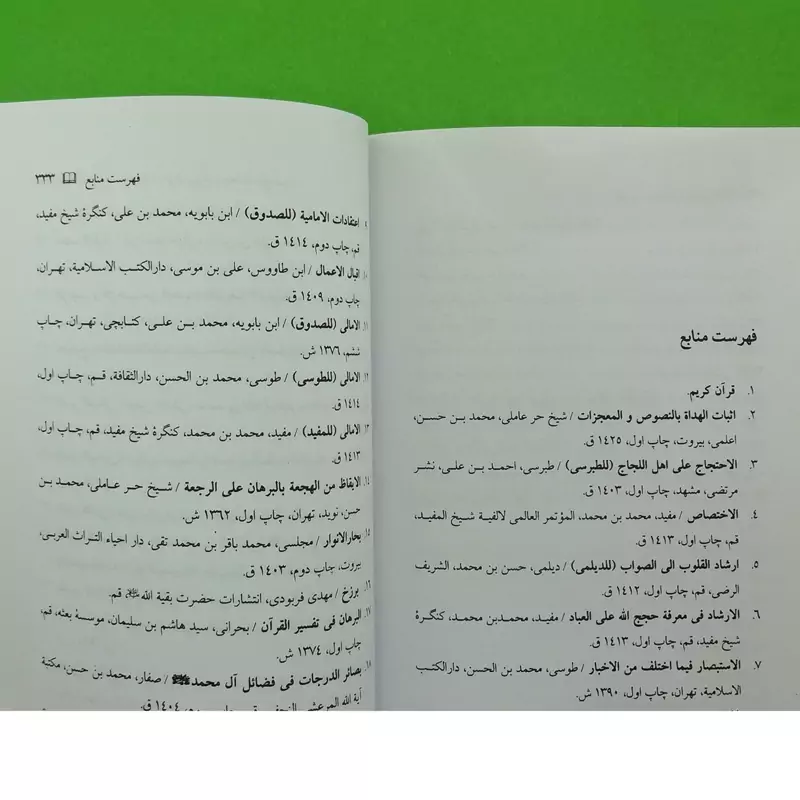 فهرست منابع
۱. قرآن کریم.
۲. اثبات الهداة بالنصوص و المعجزات / شیخ حر عاملی، محمد بن حسن،
اعلمی، بیروت، چاپ اول، ۱۴۲۵ ق.
۳. الاحتجاج علی اهل اللجاج (للطبرسی) / طبرسی، احمد بن علی، نشر
مرتضی، مشهد، چاپ اول، ۱۴۰۳ ق.
۴. الاختصاص / مفید، محمد بن محمد، المؤتمر العالمی لالفیة شیخ المفید،
قم، چاپ اول، ۱۴۱۳ ق.
۵. ارشاد القلوب الی الصواب (للدیلمی) / دیلمی، حسن بن محمد، الشریف
الرضی، قم، چاپ اول، ۱۴۱۲ ق.
۶. الارشاد فی معرفة حجج الله علی العباد / مفید، محمدبن محمد، کنگرة
شیخ مفید، قم، چاپ اول، ۱۴۱۳ ق.
۷. الاستبصار فیما اختلف من الاخبار / طوسی، محمد بن الحسن، دارالکتب
الاسلامیة، تهران، چاپ اول، ۱۳۹۰ ش.
فهرست منابع ۳۳۳
۹. إعتقادات الامامیة (للصدوق) / ابن بابویه، محمد بن علی، کنگرة شیخ مفید،
قم، چاپ دوم، ۱۴۱۴ ق.
۱۰. اقبال الاعمال / ابن طاووس، علی بن موسی، دارالکتب الاسلامیة، تهران،
چاپ دوم، ۱۴۰۹ ق.
۱۱. الامالی (للصدوق) / ابن بابویه، محمد بن علی، کتابچی، تهران، چاپ
ششم، ۱۳۷۶ ش.
۱۲. الامالی (للطوسی) / طوسی، محمد بن الحسن، دارالثقافة، قم، چاپ اول،
۱۴۱۴ ق.
۱۳. الامالی (للمفید) / مفید، محمد بن محمد، کنگرة شیخ مفید، قم، چاپ اول،
۱۴۱۳ ق.
۱۴. الایقاظ من الهجعة بالبرهان علی الرجعة / شیخ حر عاملی، محمد بن
حسن، نوید، تهران، چاپ اول، ۱۳۶۲ ش.
۱۵. بحارالانوار / مجلسی، محمد باقر بن محمد تقی، دار احیاء التراث العربی،
بیروت، چاپ دوم، ۱۴۰۳ ق.
۱۶. برزخ / مهدی فربودی، انتشارات حضرت بقیة الله، قم.
۱۷. البرهان فی تفسیر القرآن / بحرانی، سید هاشم بن سلیمان، موسسة بعثه، قم،
چاپ اول، ۱۳۷۴ ش.
۱۸. بصائر الدرجات فی فضائل آل محمدﷺ / صفار، محمد بن حسن، مکتبة
آیة الله المرعشی النجفی، قم، چاپ دوم، ۱۴۰۴ ق.